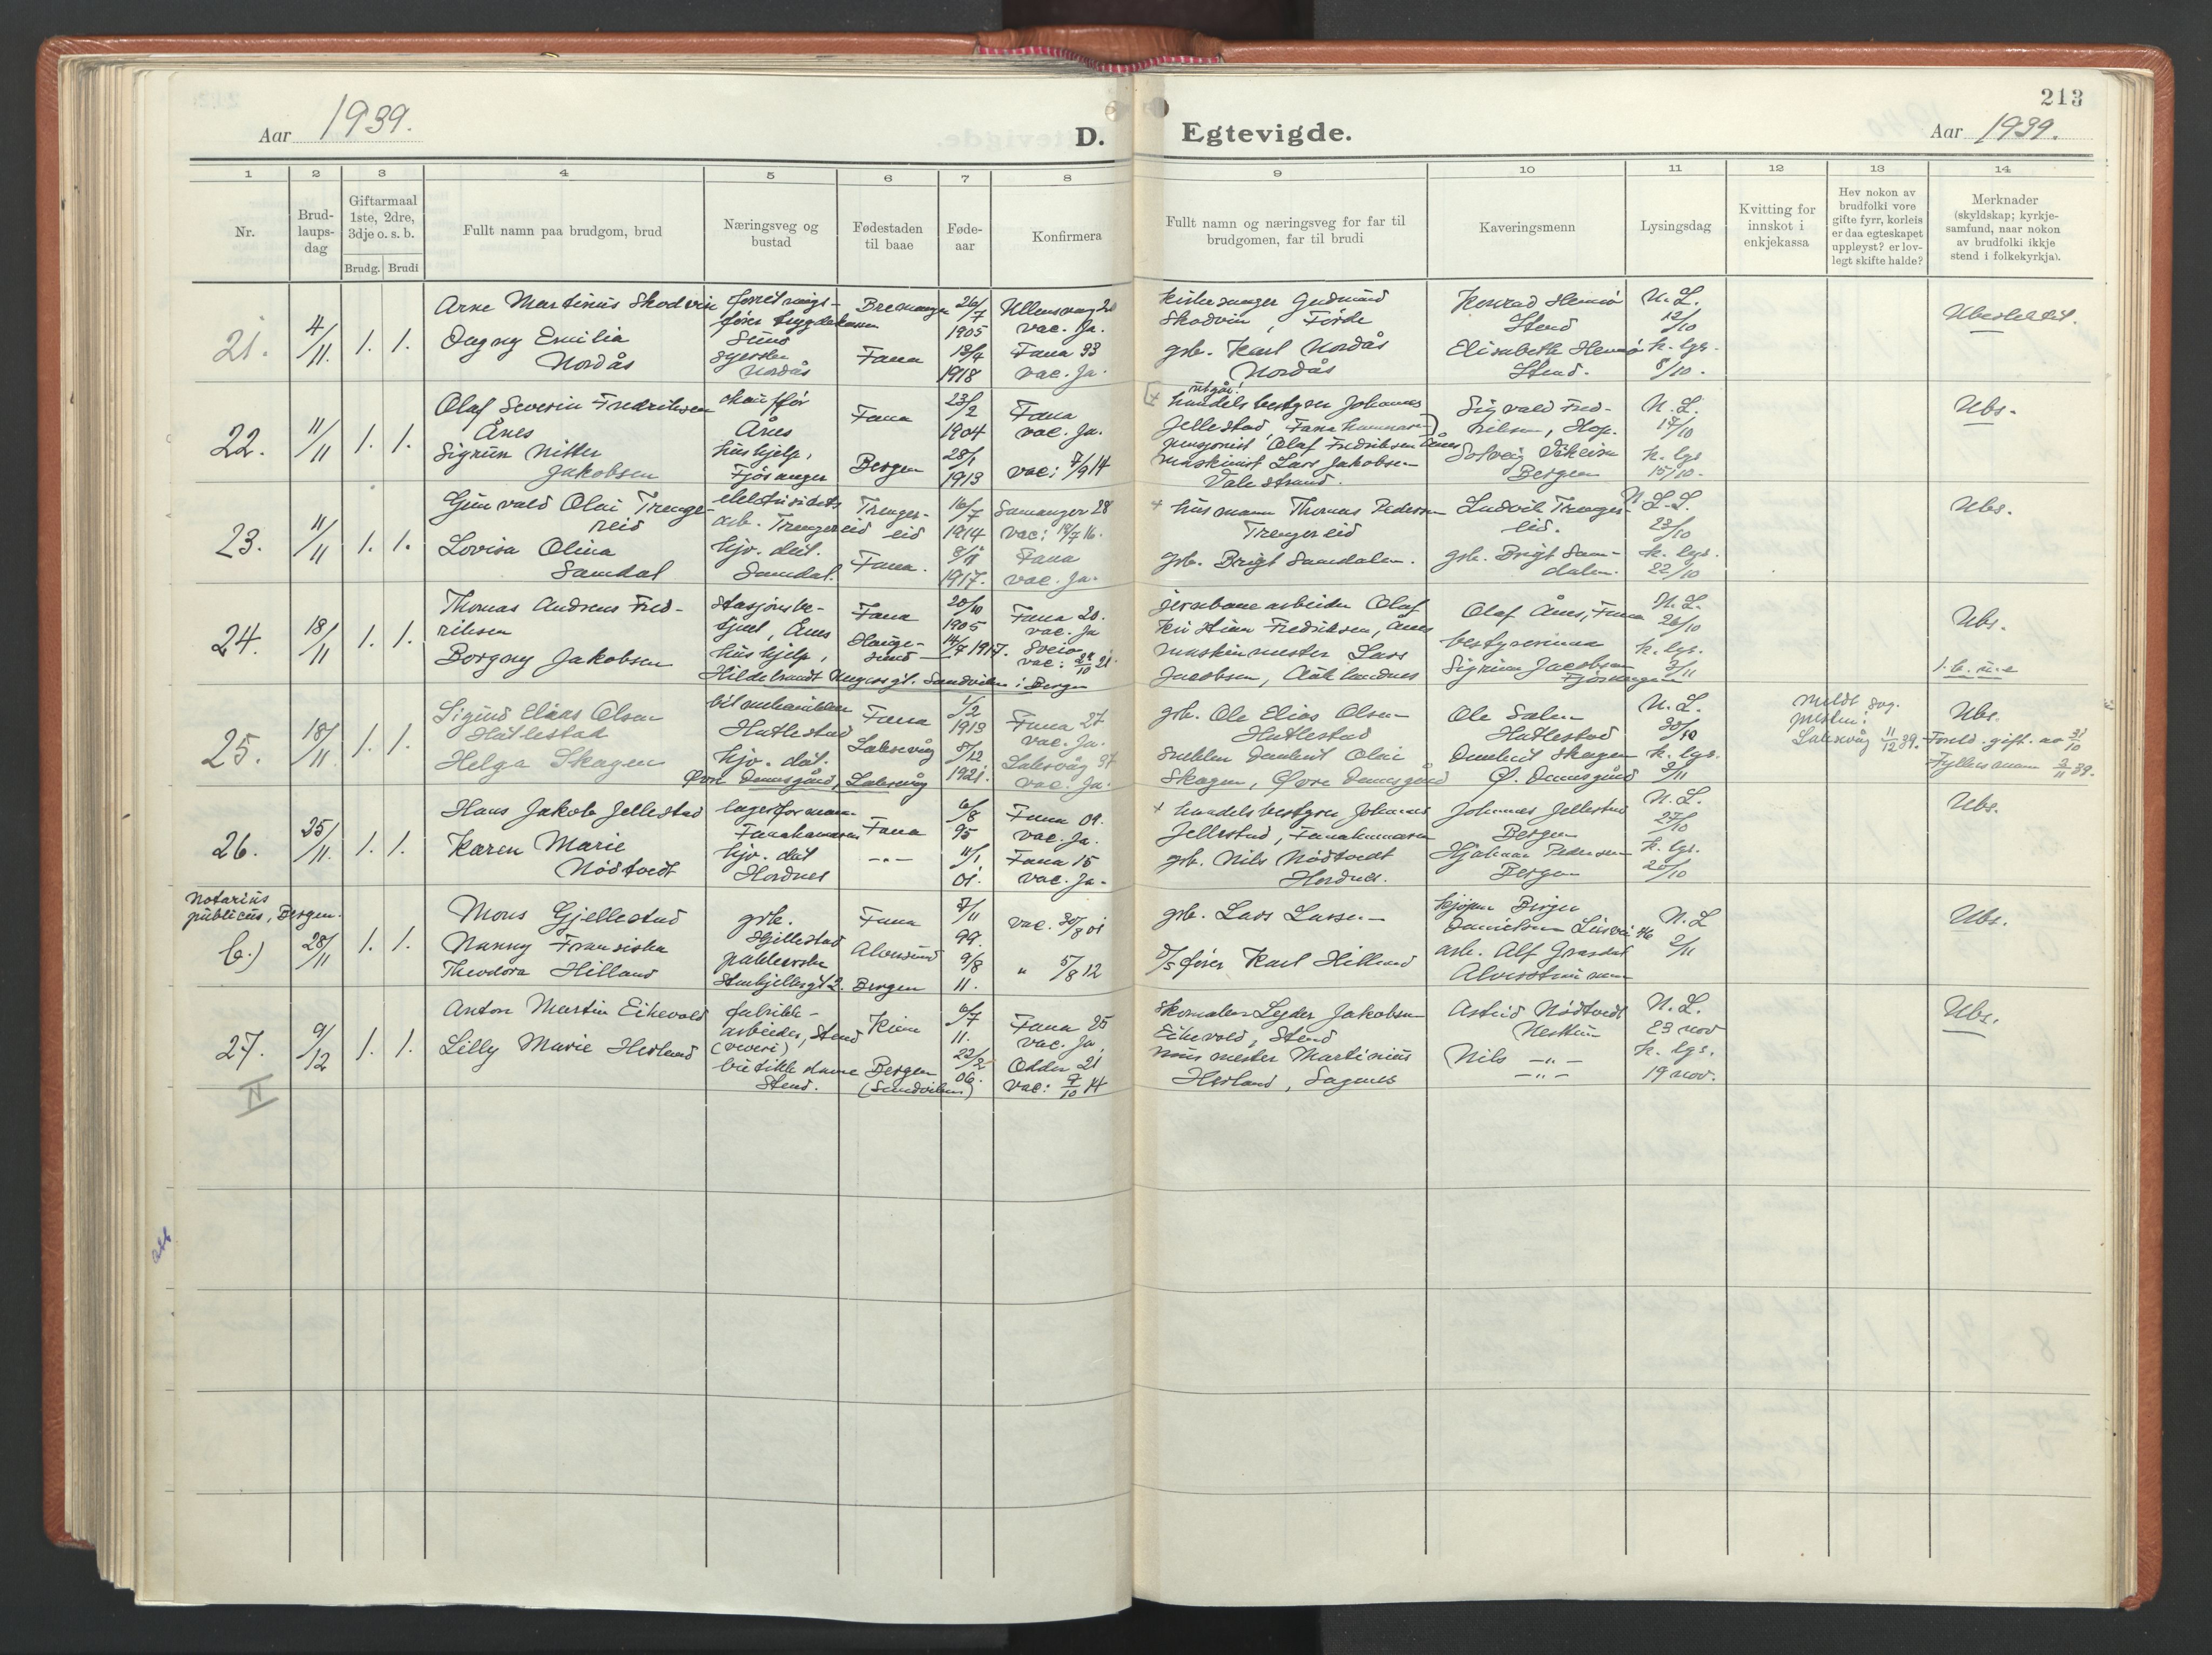 213
Aar 1939.
D. Egtevigde.
Aar 1939.
1 2 3 4 5 6 7 8 9 10 11 12 13 14
Nr.
Brud-
laups-
dag
Giftarmaal
1ste, 2dre,
3dje o. s. b.
Brudg. Brudi
Fullt namn paa brudgom, brud
Næringsveg og
bustad
Fødestaden
til baae
Føde-
aar
Konfirmera
Fullt namn og næringsveg for far til
brudgomen, far til brudi
Kaveringsmenn
Lysingsdag
Kvitting for
innskot i
enkjekassa
Hev nokon av
brudfolki vore
gifte fyrr, korleis
er daa egteskapet
uppløyst? er lov-
legt skifte halde?
Merknader
(skyldskap; kyrkje-
samfund, naar nokon
av brudfolki ikkje
stend i folkekyrkja).
21.
4/11.
1. 1.
Arne Martinius Skodvin
Dagny Emilia
Nordås
Stend
Nordås
Bremanger
Fana
26/7
1905
13/4
1918
Ullensvang 20
vac. Ja.
Fana 33
vac. Ja.
Skodvin, Förde
gsb. Karl Nordås
Nordås
Konrad
Stend
Elisabeth
Stend.
N. L.
12/10
k. lys.
8/10.
22.
11/11
1. 1.
Olaf Severin Fredriksen
Ånes
Sigrun Nitter
Jakobsen
Ånes
hushjelp,
Fjösanger
Fana
Bergen
23/2
1904
28/1
1913
Fana
vac. Ja.
vac: 7/9 14
utgår!
handelsbestyrer Johannes
Jellestad Fanahammaren
pensjonist Olaf Fredriksen Ånes
maskinist Lars Jakobsen
Valestrand.
Sigvald Fred-
riksen, Hop.
Solveig
Bergen
N. L.
17/10
k. lys
15/10.
Ubs.
23.
11/11
1. 1.
Gunvald Olai Trenge-
reid
Lovisa Olina
Samdal
arb. Trengereid
hjv. dat.
Samdal.
Trenger-
eid
Fana.
16/7
1914
1917.
Samanger 28
vac: 18/7 16.
Fana
vac. Ja.
+ husmann Thomas Pedersen
Trengereid
gsb. Brigt Samdalen.
Ludvik Trenger-
eid.
gsb. Brigt Sam-
dalen.
N. L.
23/10
k. lys.
22/10
Ubs.
24.
18/11
1. 1.
Thomas Andreas Fred-
riksen
Borgny Jakobsen
stasjonsbe-
tjent, Ånes
hushjelp,
Hildebrandt Meyersgt. Sandviken i Bergen
Fana
Hauge-
sund
20/10
1905
14/7 1917.
Fana 20.
vac. Ja
Sveio
jernbanearbeider Olaf
Kristian Fredriksen, Ånes
maskinmester Lars
Jacobsen,
Olaf Ånes, Fana
bestyrerinne
Sigrun Jacobsen
Fjösanger
N. L.
26/10
k. lys.
Ubs.
25.
18/11
1. 1.
Sigurd Elias Olsen
Hatlestad
Helga Skagen
bilmekaniker
Hatlestad
hjv. dat.
Øvre Damsgård, Laksevåg
Fana
Laksevåg
1/2
1913
8/12
1921.
Fana 27
vac. Ja.
Laksevåg
vac. Ja.
gsb. Ole Elias Olsen
Hatlestad
Snekker Danbert Olai
Skagen, Øvre Damsgård
Ole Salen
Hatlestad
Danbert Skagen
Ø. Damsgård
N. L.
30/10
k. lys.
Meldt sog.
presten i
Laksevåg 11/12 39.
Ubs.
26.
25/11.
1. 1.
Hans Jakob Jellestad
Karen Marie
Nödtvedt
lagerformann
Fanahamaren
hjv. dat
Hordnes
Fana
—„—
6/8
95
11/1
01.
Fana 09.
vac. Ja.
Fana 15
vac. Ja.
+ handelsbestyrer Johannes
Jellestad, Fanahammaren
gsb. Nils Nödtvedt
Hordnes.
Johannes Jellestad
Bergen
Hjalmar Pedersen
Bergen
N. L.
27/10
k. lys.
20/10
Ubs.
Notarius
publicus, Bergen.
6.)
28/11
1. 1.
Mons Gjellestad
Nanny Fransiska
Theodora Hilland
gsb.
Gjellestad
Bergen
Fana
Alversund
7/11
99.
9/8
11.
vac. 30/8 01
„ 5/8 12
gsb. Lars Larsen
D/S fører Karl Hilland
arb. Alf
N. L
2/11
Ubs.
27.
9/12
1. 1.
Anton Martin Eikevold
Lilly Marie Hesland
fabrikk-
arbeider, Stend
(veveri)
butikkdame
Stend.
Bergen
(Sandviken)
6/7
11.
22/2
06.
Fana 25
vac. Ja.
Odda 21
vac: 7/10 14
skomaker Lyder Jakobsen
Eikevold, Stend
mester Martinius
Hesland, Sagenes
Astrid Nödtvedt
Nesttun
Nils —„—
—„—
N. L.
23 nov
k. lys.
19 nov.
Ubs.